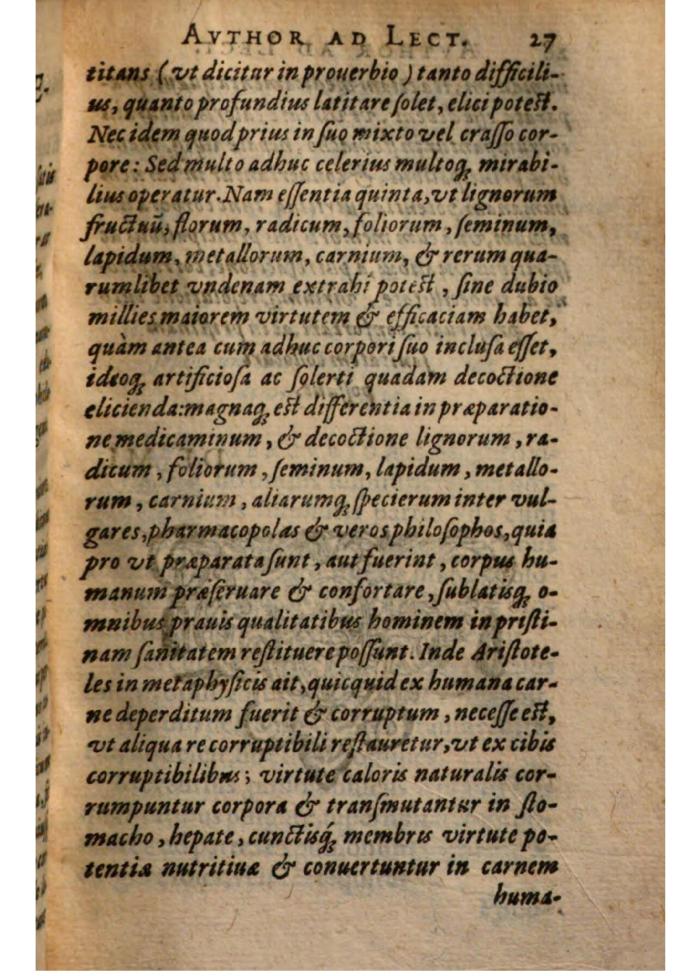 AVTHOR AD LECT. 27
titans (vt dicitur in prouerbio) tanto difficili-
us, quanto profundius latitare ſolet, elici poteſt.
Nec idem quod prius in ſuo mixto vel craſſo cor-
pore: Sed multo adhuc celerius multoq́ mirabi-
lius operatur. Nam eſſentia quinta, vt lignorum
fructuū, florum, radicum, foliorum, ſeminum,
lapidum, metallorum, carnium, & rerum qua-
rumlibet vndenam extrahi poteſt, ſine dubio
millies maiorem virtutem & efficaciam habet,
quàm antea cum adhuc corpori ſuo incluſa eſſet,
ideoq́ artificioſa ac ſolerti quadam decoctione
elicienda: magnaq́ eſt differentia in præparatio-
ne medicaminum, & decoctione lignorum, ra-
dicum, foliorum, ſeminum, lapidum, metallo-
rum, carnium, aliarumq́ ſpecierum inter vul-
gares, pharmacopolas & veros philoſophos, quia
pro vt præparata ſunt, aut fuerint, corpus hu-
manum præſeruare & confortare, ſublatisq́ o-
mnibus prauis qualitatibus hominem in priſti-
nam ſanitatem reſtituere poſſunt. Inde Ariſtote-
les in metaphyſicis ait, quicquid ex humana car-
ne deperditum fuerit & corruptum, neceſſe eſt,
vt aliqua re corruptibili reſtauretur, vt ex cibis
corruptibilibus; virtute caloris naturalis cor-
rumpuntur corpora & tranſmutantur in ſto-
macho, hepate, cunctisq́ membris virtute po-
tentiæ nutritiuæ & conuertuntur in carnem
huma-